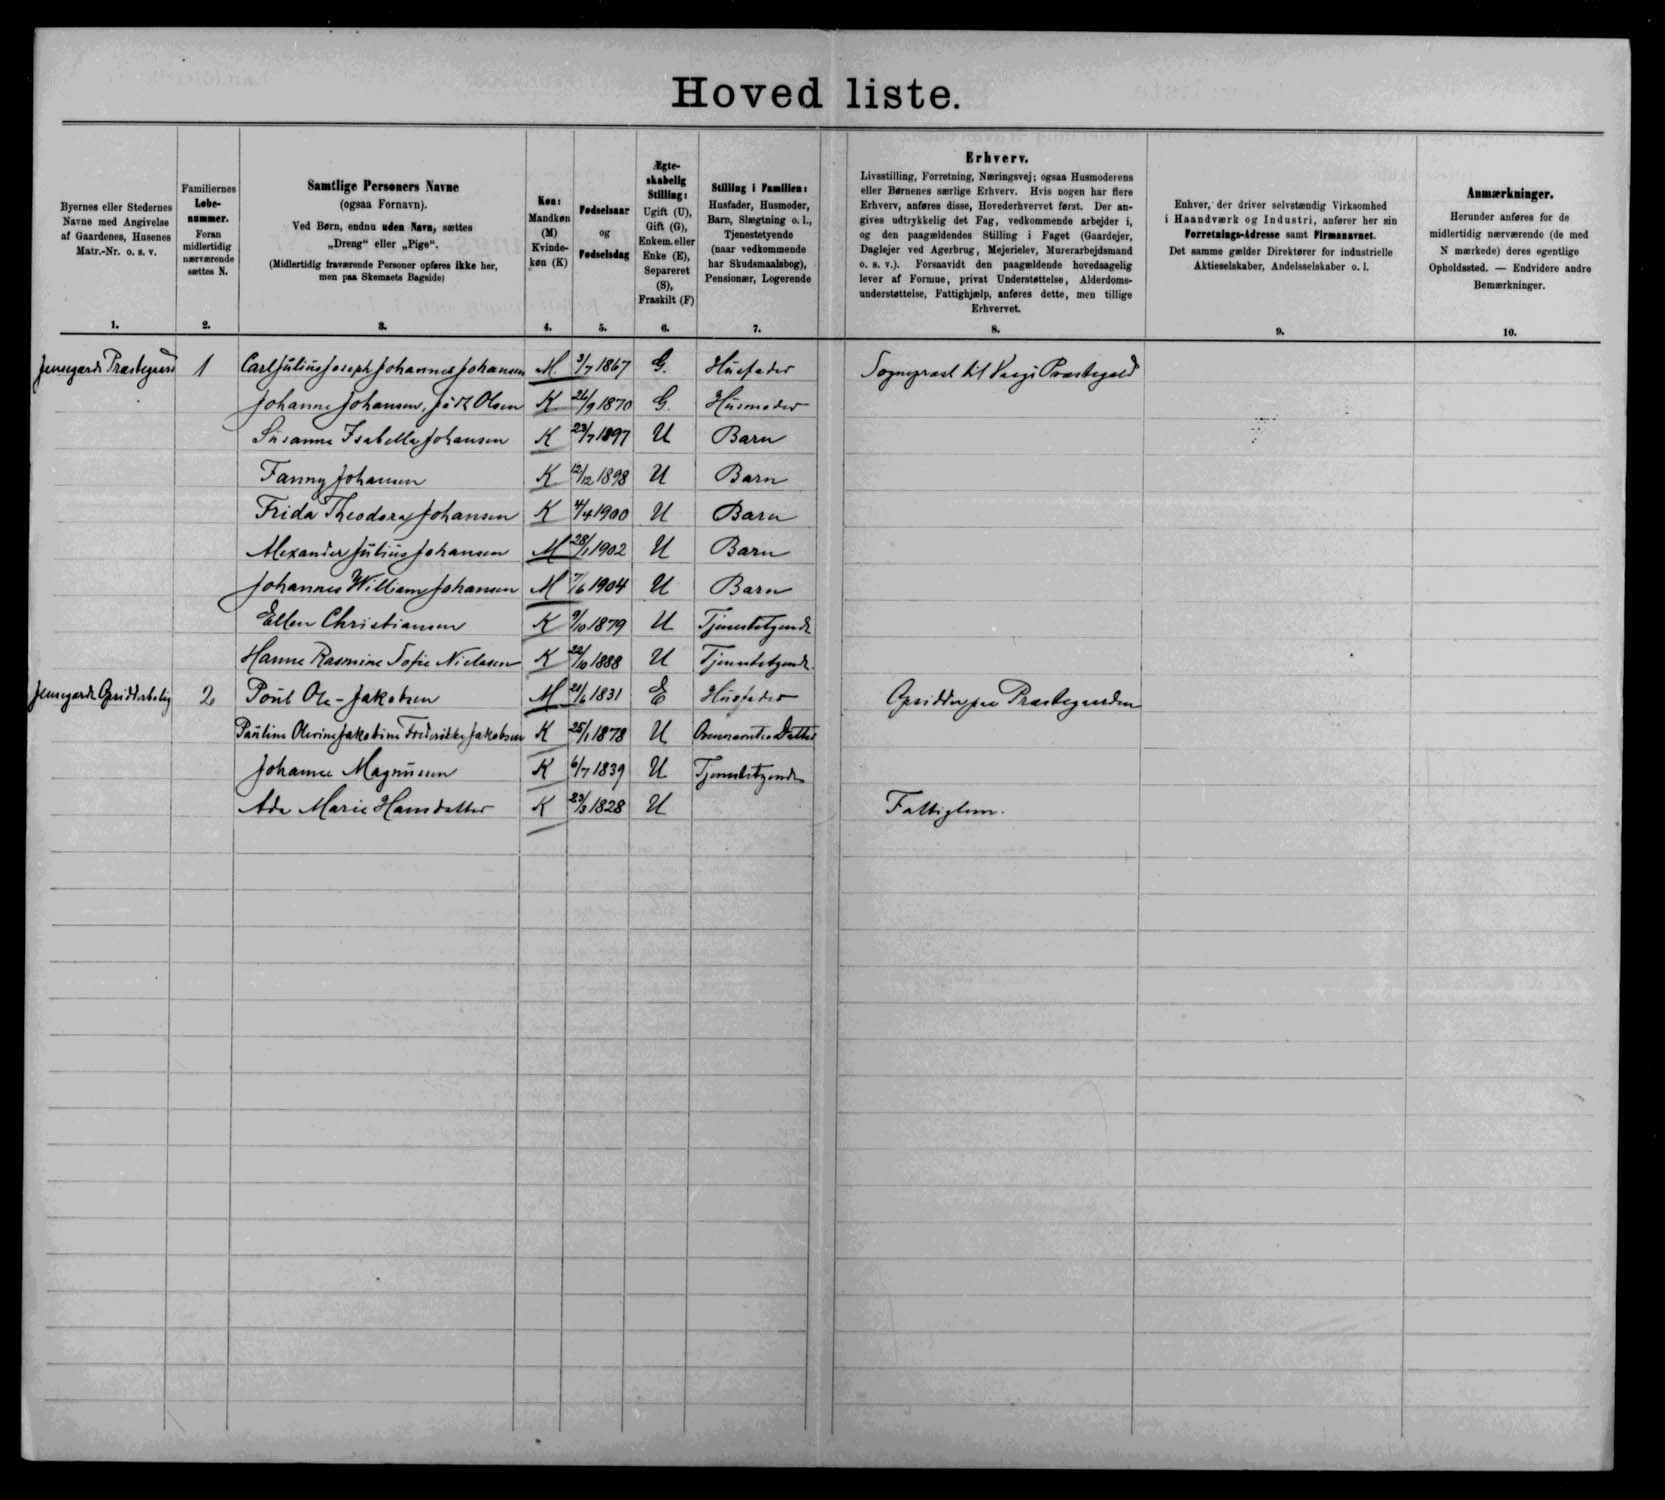 Hoved liste.
Byernes eller Stedernes
Navne med Angivelse
af Gaardenes, Husenes
Matr.-Nr. o. s. v.
1.
Familiernes
Løbe-
nummer.
Foran
midlertidig
nærværende
sættes N.
2.
Samtlige Personers Navne
(ogsaa Fornavn).
Ved Børn, endnu uden Navn, sættes
„Dreng“ eller „Pige“.
(Midlertidig fraværende Personer opføres ikke her,
men paa Skemaets Bagside)
3.
Køn:
Mandkøn
(M)
Kvinde-
køn (K)
4.
Fødselsaar
og
Fødselsdag
5.
Ægte-
skabelig
Stilling:
Ugift (U),
Gift (G),
Enkem. eller
Enke (E),
Separeret
(S),
Fraskilt (F)
6.
Stilling i Familien:
Husfader, Husmoder,
Barn, Slægtning o. l.,
Tjenestetyende
(naar vedkommende
har Skudsmaalsbog),
Pensionær, Logerende
7.
Erhverv.
Livsstilling, Forretning, Næringsvej; ogsaa Husmoderens
eller Børnenes særlige Erhverv. Hvis nogen har flere
Erhverv, anføres disse, Hovederhvervet først. Der an-
gives udtrykkelig det Fag, vedkommende arbejder i,
og den paagældendes Stilling i Faget (Gaardejer,
Daglejer ved Agerbrug, Mejerielev, Murerarbejdsmand
o. s. v.). Forsaavidt den paagældende hovedsagelig
lever af Formue, privat Understøttelse, Alderdoms-
understøttelse, Fattighjælp, anføres dette, men tillige
Erhvervet.
8.
Enhver, der driver selvstændig Virksomhed
i Haandværk og Industri, anfører her sin
Forretnings-Adresse samt Firmanavnet.
Det samme gælder Direktører for industrielle
Aktieselskaber, Andelsselskaber o. l.
9.
Anmærkninger.
Herunder anføres for de
midlertidig nærværende (de med
N mærkede) deres egentlige
Opholdssted. — Endvidere andre
Bemærkninger.
10.
Jensegards Præstegaard 1 Carl Julius Joseph Johannes Johansen M 3/7 1867 G. Husfader Sognepræst til Vaagø Præstegæld
Johanne Johansen, født Olsen K 26/9 1870 G. Husmoder
Susanne Isabella Johansen K 23/7 1897 U Barn
Fanny Johansen K 12/12 1898 U Barn
Frida Theodora Johansen K 4/4 1900 U Barn
Alexander Julius Johansen M 28/1 1902 U Barn
Johannes William Johansen M 7/6 1904 U Barn
Ellen Christiansen K 9/10 1879 U Tjenestetyende
Hanne Rasmine Sofie Nielasen K 22/10 1888 U Tjenestetyende
Jensegards Opsidderbolig 2 Poul Ole-Jakobsen M 1831 E Husfader Opsidder paa Præstegaarden
Pauline Olevine Jakobine Frederikke Jakobsen K 25/1 1878 U Ovennævntes Datter
Johanne Magnussen K 6/7 1839 U Tjenestetyende
Ade Marie Hansdatter K 23/3 1828 U Fattiglem.